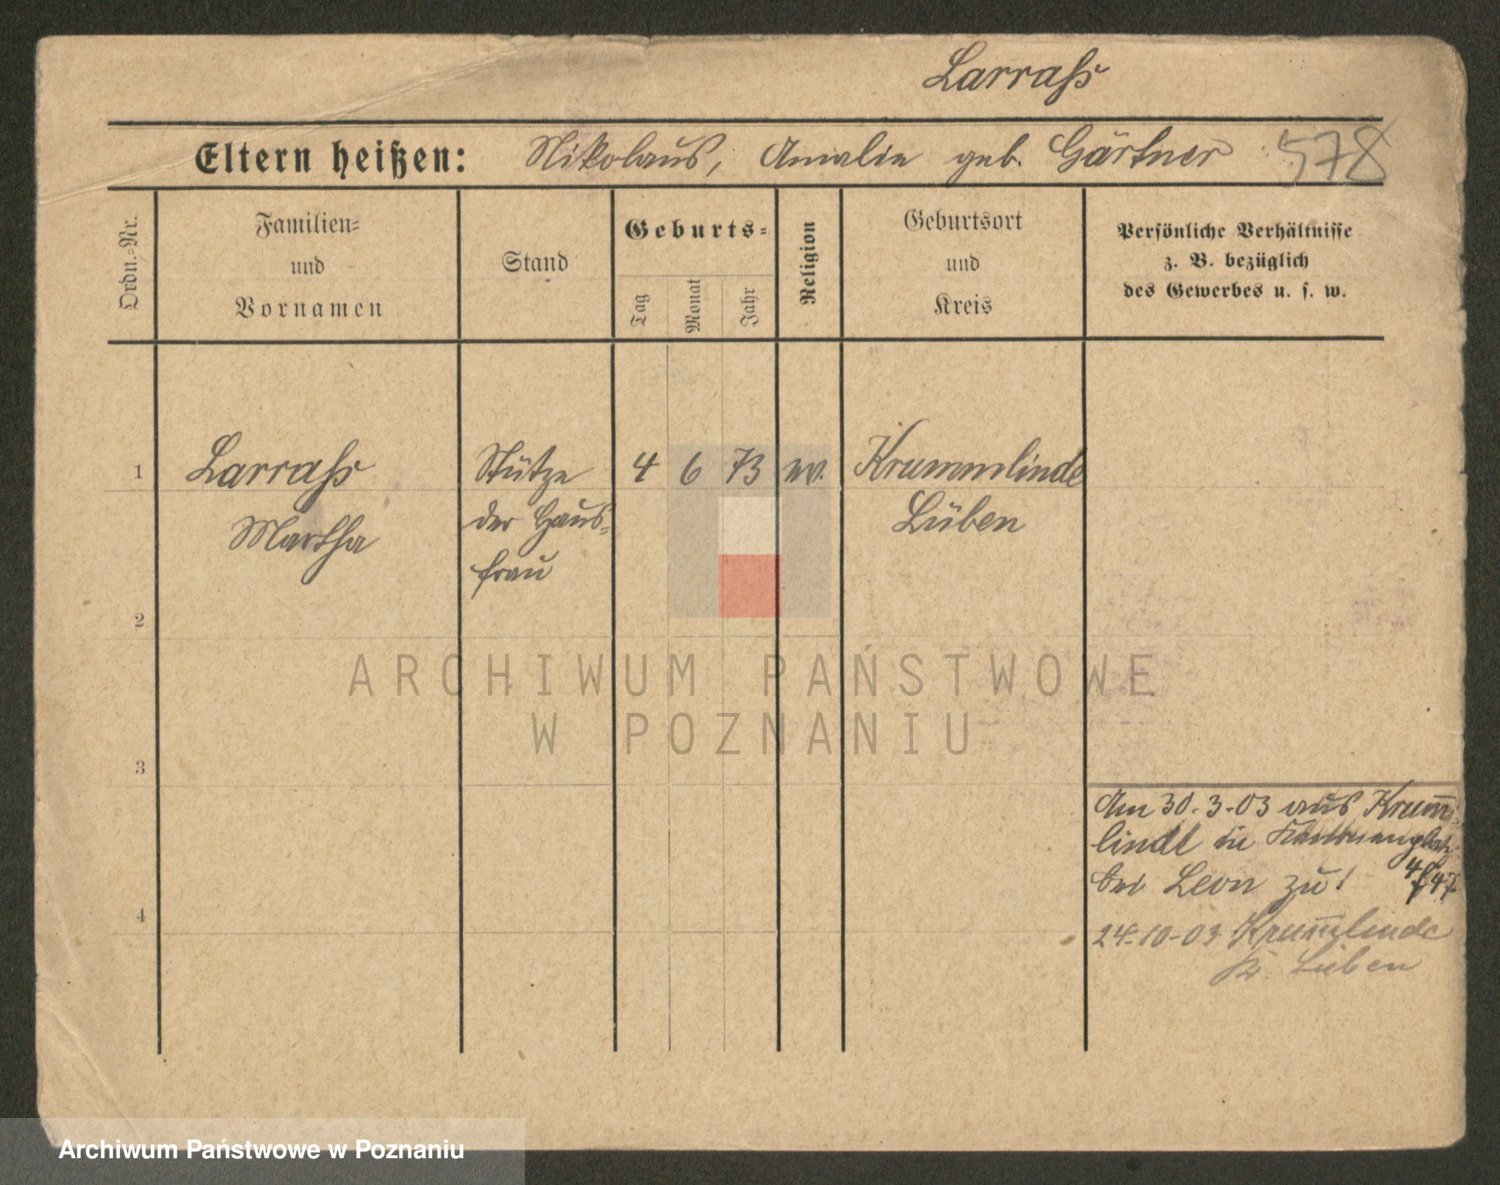 Larraß
Eltern heißen: Nikolaus, Amalie geb. Gärtner 578
Ordn.-Nr.
Familien-
und
Vornamen
Stand
Geburts-
Tag
Monat
Jahr
Religion
Geburtsort
und
Kreis
Persönliche Verhältnisse
z. B. bezüglich
des Gewerbes u. s. w.
1 Larraß Stütze 4 6 73 ev. Krummlinde
Martha der Haus- Lüben
frau
2
3
4
Am 30.3.03 aus Krum̅-
linde in
bei Leon zu!
24-10-03 Krum̅linde
Kr. Lüben
ARCHIWUM PAŃSTWOWE
W POZNANIU
Archiwum Państwowe w Poznaniu